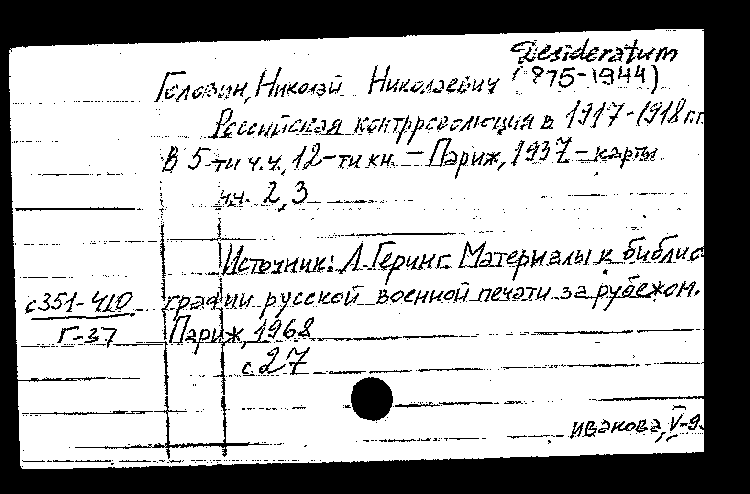 Desideratum
Головин, Николай Николаевич (1875-1944)
Российская контрреволюция в 1917-1918 гг.
В 5-ти ч.ч., 12-ти кн. - Париж, 1937 - карты
чч. 2, 3
Источник: Л. Геринг. Материалы к библио
графии русской военной печати за рубежом.
Париж, 1968
с. 27
с351-410
Г-37
иванова, V-9